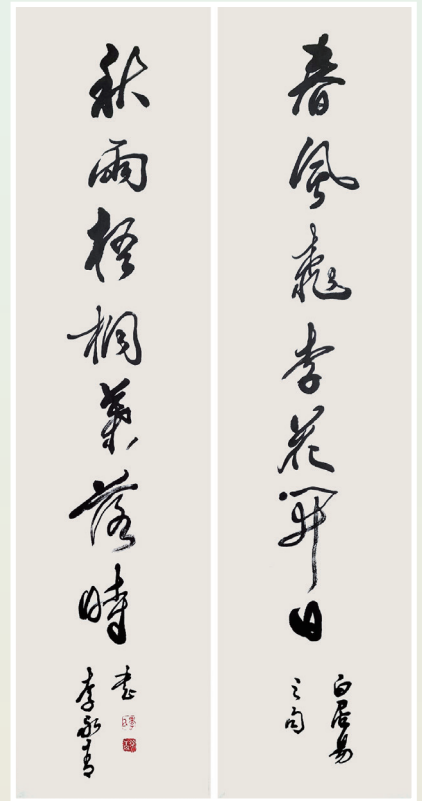 春風桃李花開日
白居易
之句
秋雨梧桐葉落時
李永青
書